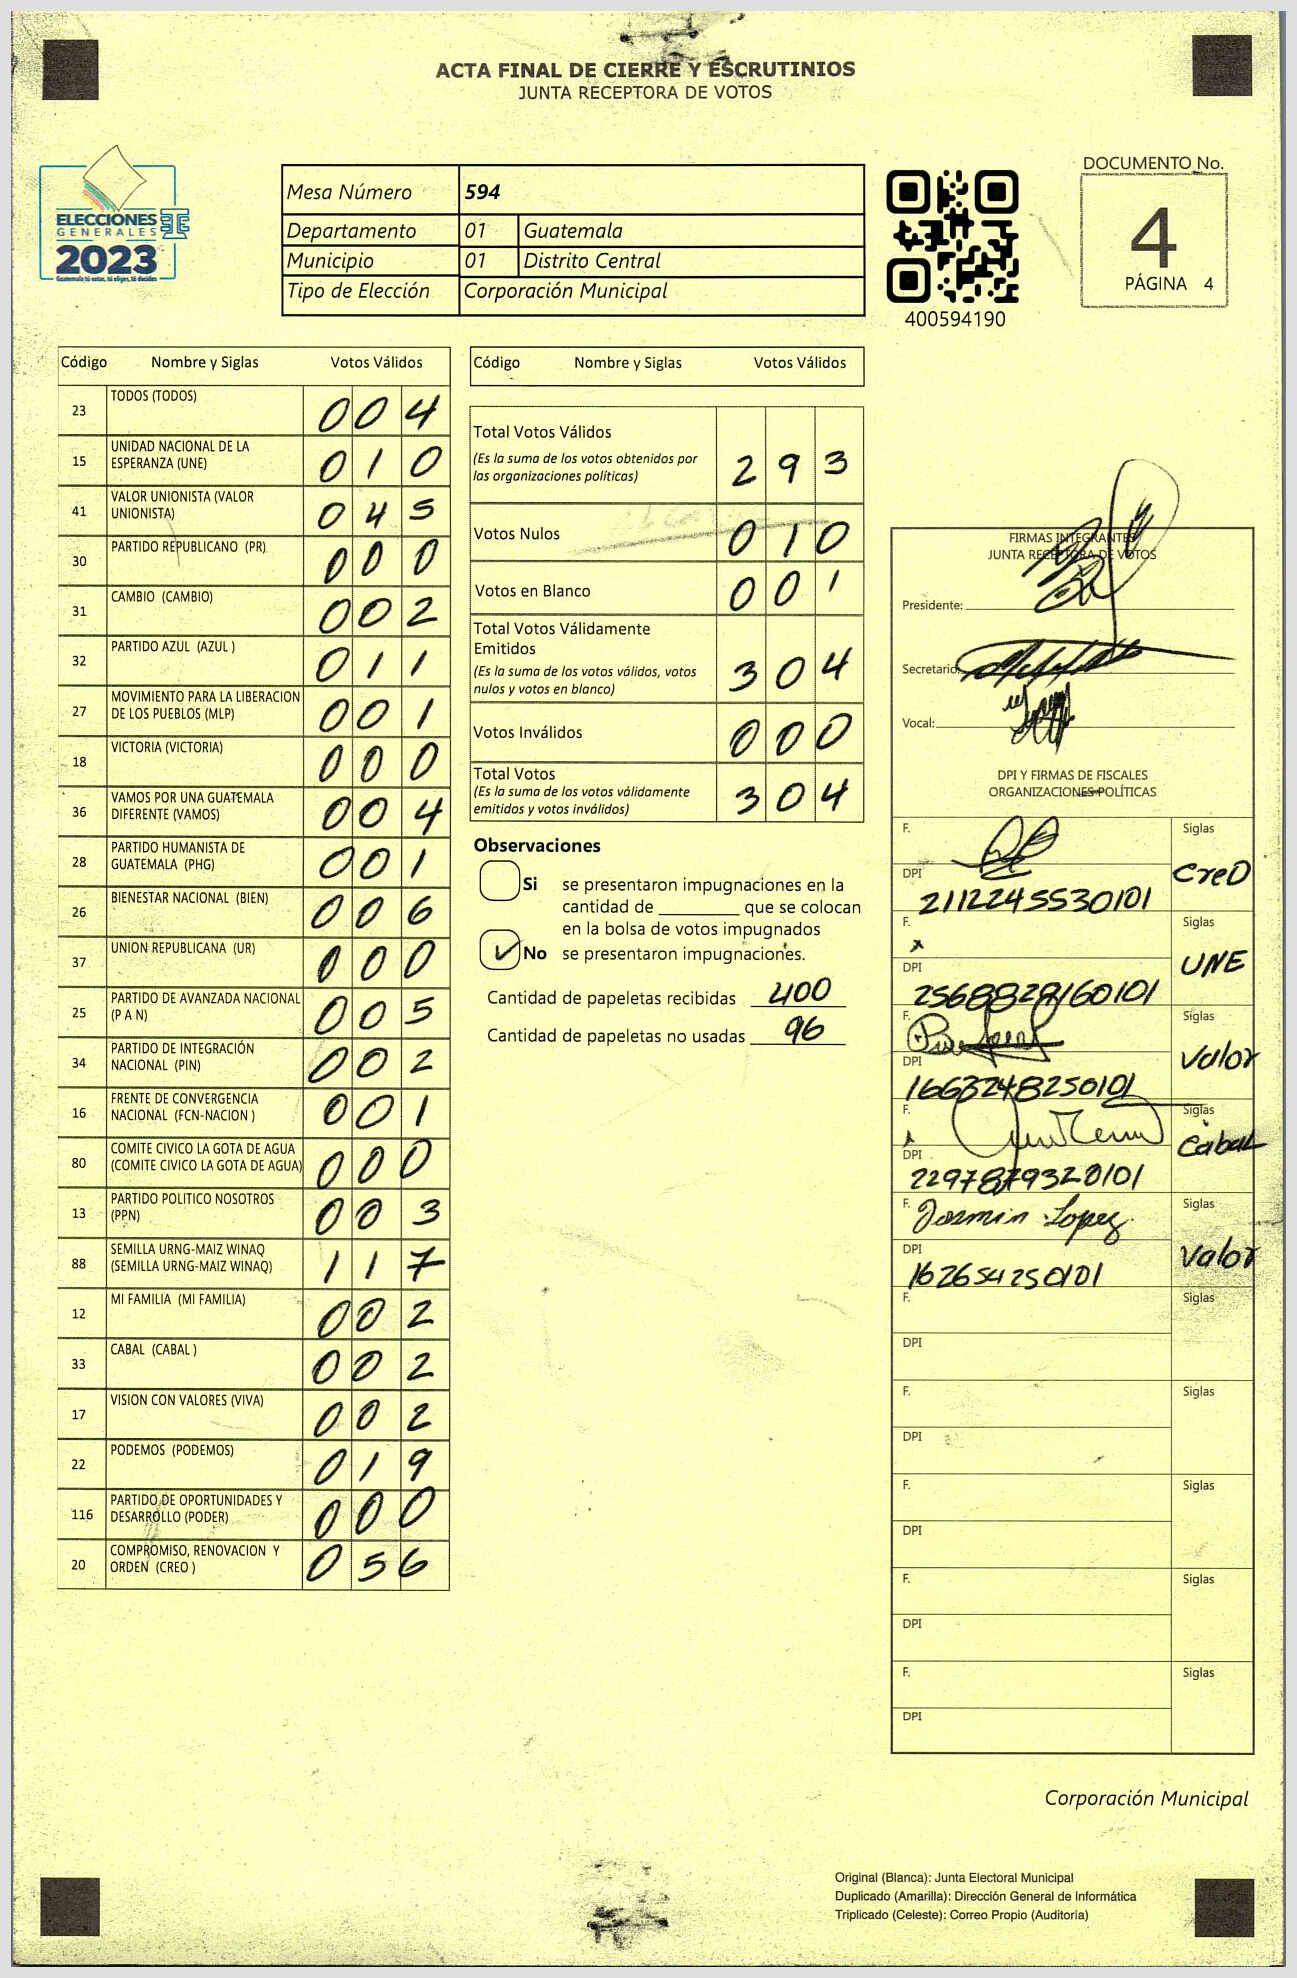 ACTA FINAL DE CIERRE Y ESCRUTINIOS
JUNTA RECEPTORA DE VOTOS
ELECCIONES
GENERALES
2023
Guatemala tú votas, tú eliges, tú decides
Mesa Número 594
Departamento 01 Guatemala
Municipio 01 Distrito Central
Tipo de Elección Corporación Municipal
400594190
DOCUMENTO No.
4
PÁGINA 4
Código Nombre y Siglas Votos Válidos
23 TODOS (TODOS) 004
15 UNIDAD NACIONAL DE LA
ESPERANZA (UNE) 010
41 VALOR UNIONISTA (VALOR
UNIONISTA) 045
30 PARTIDO REPUBLICANO (PR) 000
31 CAMBIO (CAMBIO) 002
32 PARTIDO AZUL (AZUL ) 011
27 MOVIMIENTO PARA LA LIBERACION
DE LOS PUEBLOS (MLP) 001
18 VICTORIA (VICTORIA) 000
36 VAMOS POR UNA GUATEMALA
DIFERENTE (VAMOS) 004
28 PARTIDO HUMANISTA DE
GUATEMALA (PHG) 001
26 BIENESTAR NACIONAL (BIEN) 006
37 UNION REPUBLICANA (UR) 000
25 PARTIDO DE AVANZADA NACIONAL
(P A N) 005
34 PARTIDO DE INTEGRACIÓN
NACIONAL (PIN) 002
16 FRENTE DE CONVERGENCIA
NACIONAL (FCN-NACION ) 001
80 COMITE CIVICO LA GOTA DE AGUA
(COMITE CIVICO LA GOTA DE AGUA) 000
13 PARTIDO POLITICO NOSOTROS
(PPN) 003
88 SEMILLA URNG-MAIZ WINAQ
(SEMILLA URNG-MAIZ WINAQ) 117
12 MI FAMILIA (MI FAMILIA) 002
33 CABAL (CABAL ) 002
17 VISION CON VALORES (VIVA) 002
22 PODEMOS (PODEMOS) 019
116 PARTIDO DE OPORTUNIDADES Y
DESARROLLO (PODER) 000
20 COMPROMISO, RENOVACION Y
ORDEN (CREO ) 056
Código Nombre y Siglas Votos Válidos
Total Votos Válidos
(Es la suma de los votos obtenidos por
las organizaciones políticas) 293
Votos Nulos 010
Votos en Blanco 001
Total Votos Válidamente
Emitidos
(Es la suma de los votos válidos, votos
nulos y votos en blanco) 304
Votos Inválidos 000
Total Votos
(Es la suma de los votos válidamente
emitidos y votos inválidos) 304
Observaciones
Si se presentaron impugnaciones en la
cantidad de ________ que se colocan
en la bolsa de votos impugnados
No se presentaron impugnaciones.
Cantidad de papeletas recibidas 400
Cantidad de papeletas no usadas 96
FIRMAS INTEGRANTES
JUNTA RECEPTORA DE VOTOS
Presidente:
Secretario:
Vocal:
DPI Y FIRMAS DE FISCALES
ORGANIZACIONES POLÍTICAS
F. Siglas
CREO
DPI
2112245530101
F. Siglas
UNE
DPI
2568828160101
F. Siglas
Valor
DPI
1663248250101
F. Siglas
Cabal
DPI
2297879320101
F. Jasmin Lopez Siglas
Valor
DPI
162654250101
F. Siglas
DPI
F. Siglas
DPI
F. Siglas
DPI
F. Siglas
DPI
F. Siglas
DPI
Corporación Municipal
Original (Blanca): Junta Electoral Municipal
Duplicado (Amarilla): Dirección General de Informática
Triplicado (Celeste): Correo Propio (Auditoría)